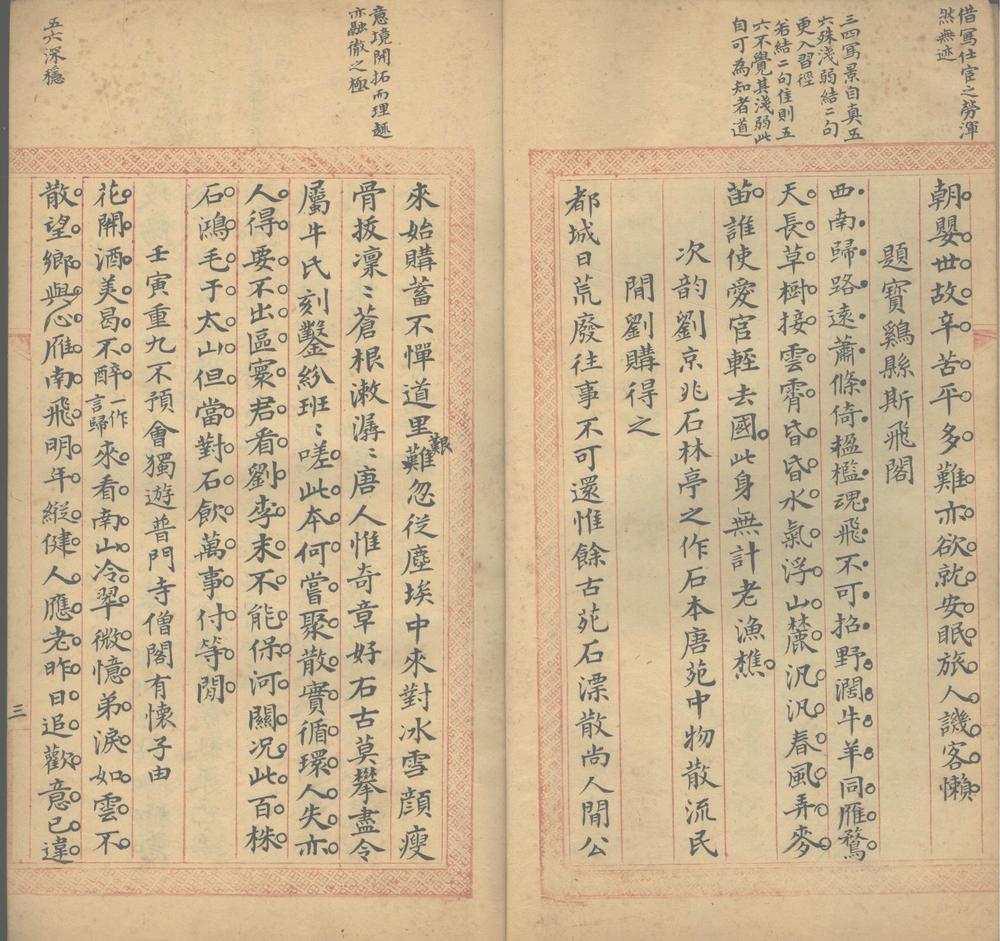 借寫仕宦之勞渾
然無迹
三四寫景自真五
六殊淺弱結二句
更入習徑
若結二句住則五
六不覺其淺弱此
自可為知者道
朝嬰世故辛苦平多難亦欲就安眠旅人譏客懶
題寶鷄縣斯飛閣
西南歸路遠蕭條倚楹檻魂飛不可招野濶牛羊同雁鶩
天長草樹接雲霄昏昏水氣浮山麓汎汎春風弄麥
苗誰使愛官輕去國此身無計老漁樵
次韵劉京兆石林亭之作石本唐苑中物散流民
間劉購得之
都城日荒廢往事不可還惟餘古苑石漂散尚人間公
意境開拓而理趣
亦融徹之極
五六深穩
來始購蓄不憚道里難艱忽從塵埃中來對冰雪顏瘦
骨拔凜〻蒼根漱潺〻唐人惟奇章好石古莫攀盡令
屬牛氏刻鑿紛班〻嗟此本何嘗聚散實循環人失亦
人得要不出區寰君看劉李末不能保河關况此百株
石鴻毛于太山但當對石飲萬事付等閒
壬寅重九不預會獨遊普門寺僧閣有懷子由
花開酒美曷不醉一作言歸來看南山冷翠微憶弟淚如雲不
散望鄉與心雁南飛明年縱健人應老昨日追歡意已違
三